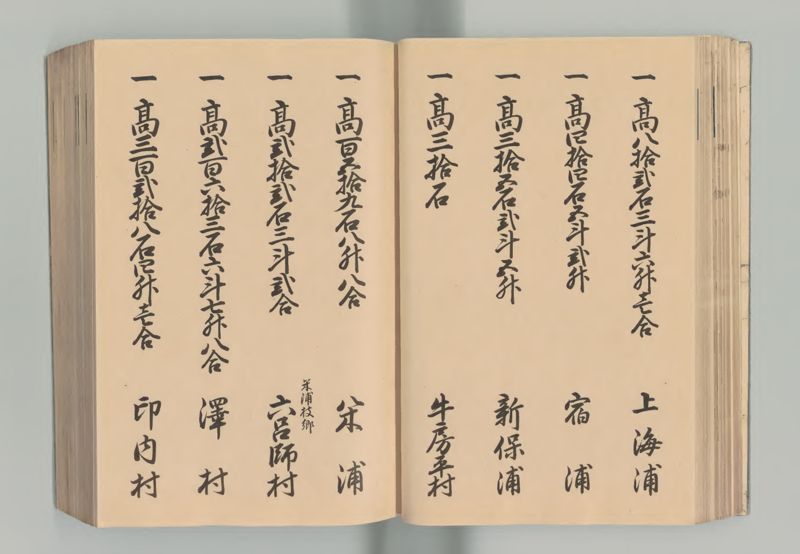 一 高八拾弐石三斗六升壱合 上海浦
一 高四拾四石五斗弐升 宿浦
一 高三拾五石弐斗五升 新保浦
一 高三拾石 牛房平村
一 高百五拾九石八升八合 米浦
米浦枝郷
一 高弐拾弐石三斗弐合 六呂師村
一 高弐百六拾三石六斗七升八合 澤村
一 高三百弐拾八石四升壱合 印内村